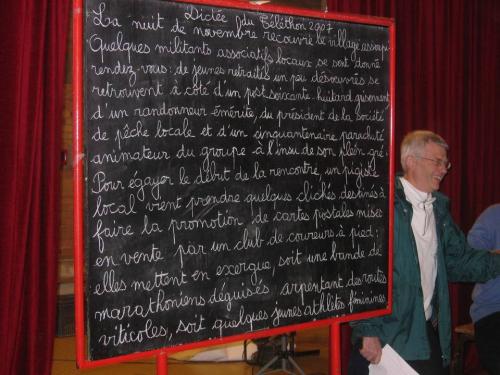 Dictée du Téléthon 2007
La nuit de novembre recouvre le village assoupi.
Quelques militants associatifs locaux se sont donné
rendez-vous : de jeunes retraités un peu désœuvrés se
retrouvent à côté d'un post soixante-huitard grisonnant
d'un randonneur émérite, du président de la société
de pêche locale et d'un cinquantenaire parachuté
animateur du groupe à l'insu de son plein gré.
Pour égayer le début de la rencontre, un pigiste
local vient prendre quelques clichés destinés à
faire la promotion de cartes postales mises
en vente par un club de coureurs à pied :
elles mettent en exergue, soit une bande de
marathoniens déguisés arpentant des routes
viticoles, soit quelques jeunes athlètes féminines